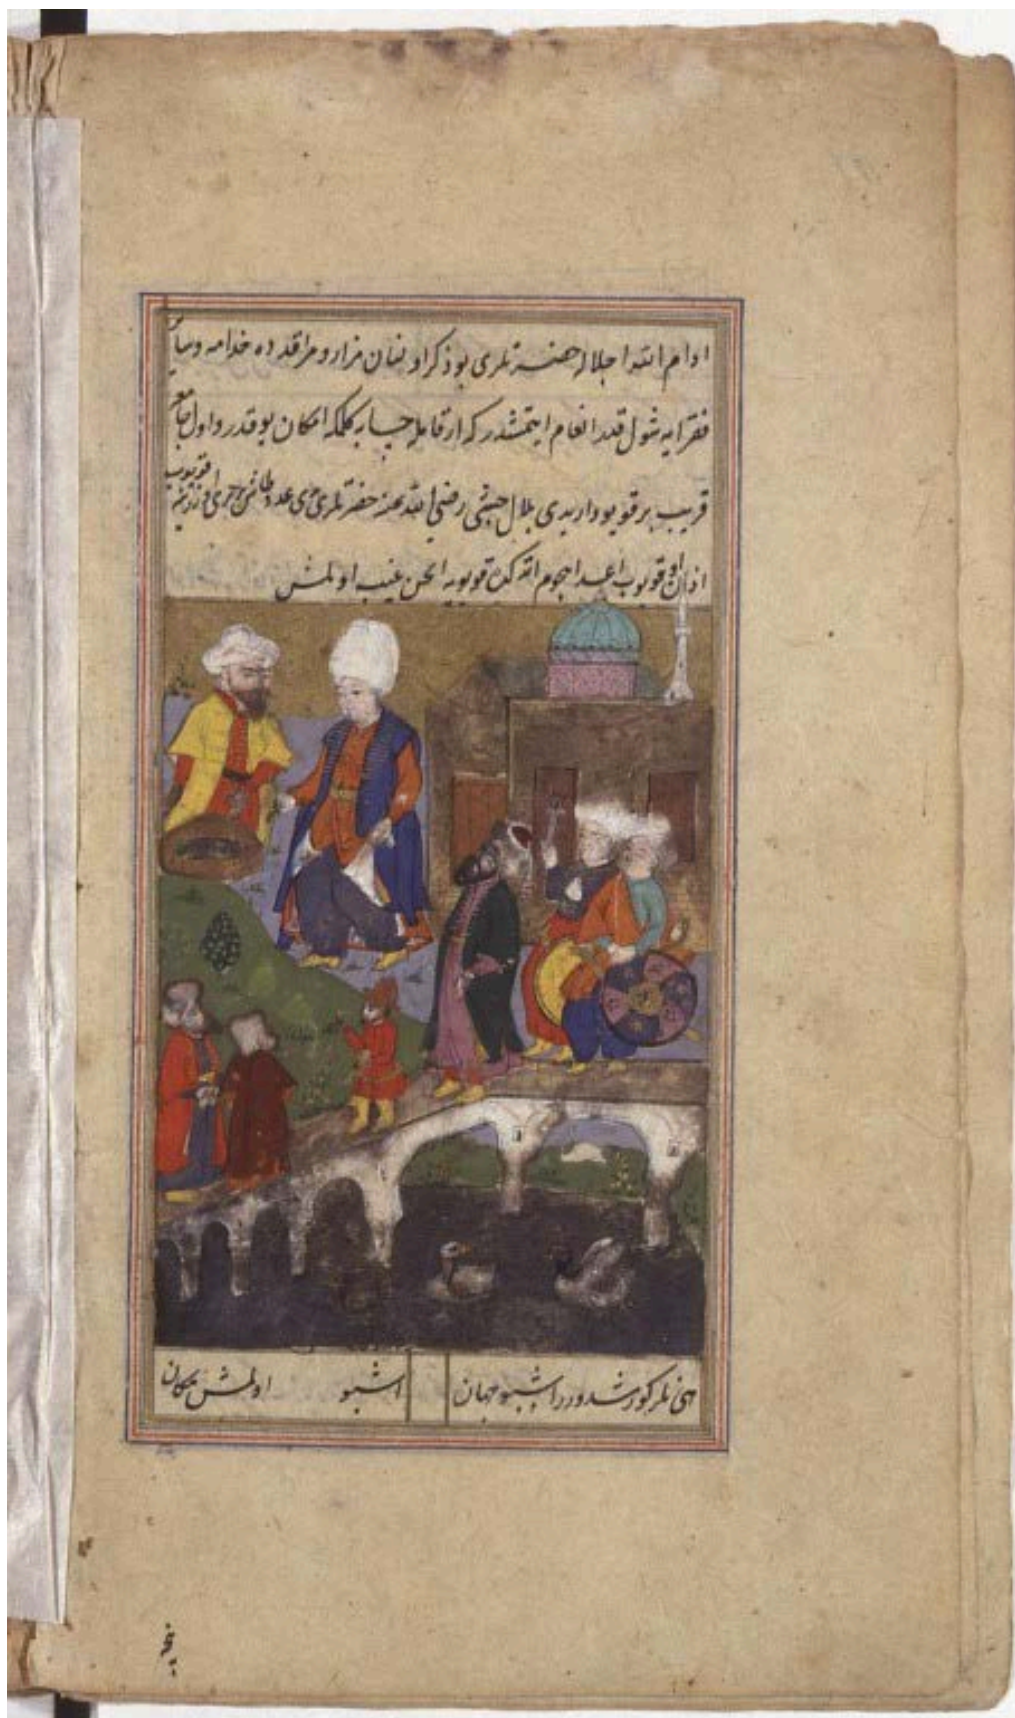 ادام الله اجلاله حضرتلری بو ذکر اولنان مزار و مراقدده خدامه و سایر
فقرایه شول قدر انعام ایتمشدر که ارقامله حسابه کلمکه امکان یوقدر و اول جامعه
قریب بر قویو وار ایدی بلال حبشی رضی الله عنه حضرتلری
اذان اوقویوب اعدا هجوم اتدکده قویویه غیب اولمش
کورشدور اشبو جهان
اشبو اولمش مکان